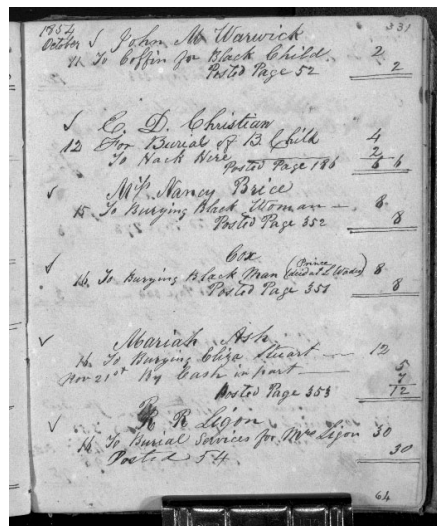 1854 331
October John M Warwick
11 To Coffin for Black Child 2
Posted Page 52 2
C. D. Christian
12 For Burial of B. Child 4
To Hack Hire 2
Posted Page 186 6 6
Mrs Nancy Brice
15 To Burying Black Woman — 8
Posted Page 352 8
Cox
16 To Burying Black Man (Prince died at L 8
Posted Page 351 8
Mariah Ash
16 To Burying Eliza Stuart — 12
Nov 21st By Cash in part 5
7
Posted Page 353 12
R R Ligon
16 To Burial Services for Mrs Ligon 30
Posted 54 30
64